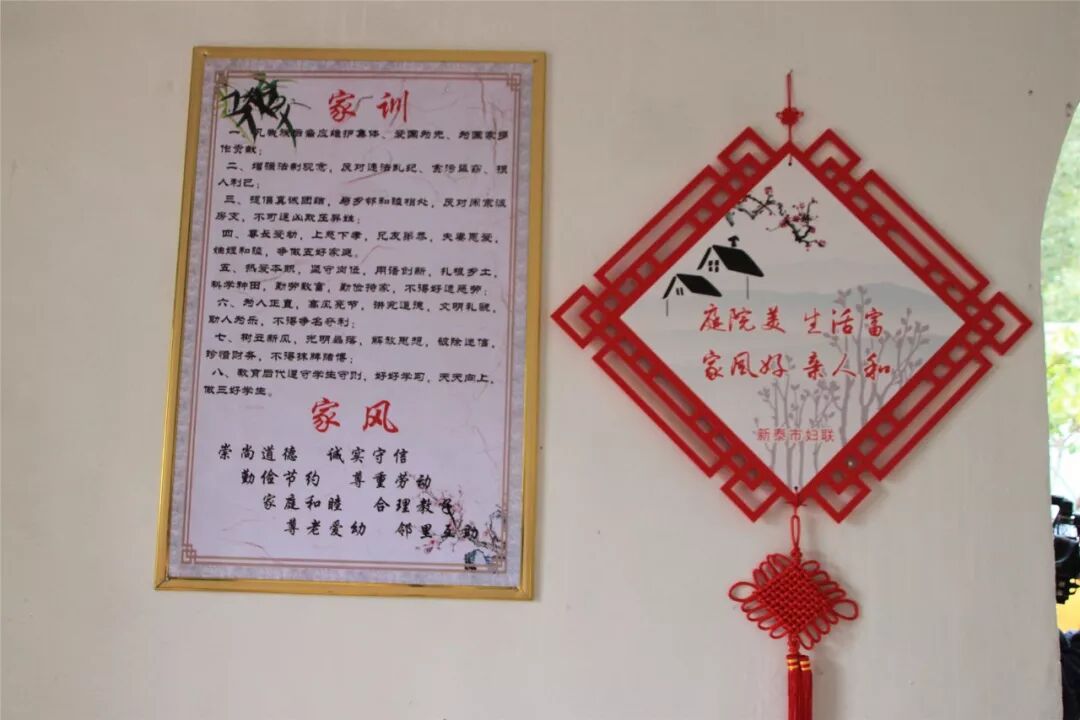 家训
一、凡我族后裔应维护集体、爱国为先、为国家多
作贡献；
二、增强法制观念，反对违法乱纪、贪污盗窃、损
人利己；
三、提倡真诚团结，居乡邻和睦相处，反对闹宗派
房支，不可逞凶欺压异姓；
四、尊长爱幼，上慈下孝，兄友弟恭，夫妻恩爱，
妯娌和睦，争做五好家庭。
五、热爱本职，坚守岗位，用语创新，扎根乡土，
科学种田，勤劳致富，勤俭持家，不得好逸恶劳；
六、为人正直，高风亮节，讲究道德，文明礼貌，
助人为乐，不得争名夺利；
七、树立新风，光明磊落，解放思想，破除迷信，
珍惜财务，不得抹牌赌博；
八、教育后代遵守学生守则，好好学习，天天向上，
做三好学生。
家风
崇尚道德 诚实守信
勤俭节约 尊重劳动
家庭和睦 合理教子
尊老爱幼 邻里互助
庭院美 生活富
家风好 亲人和
新泰市妇联